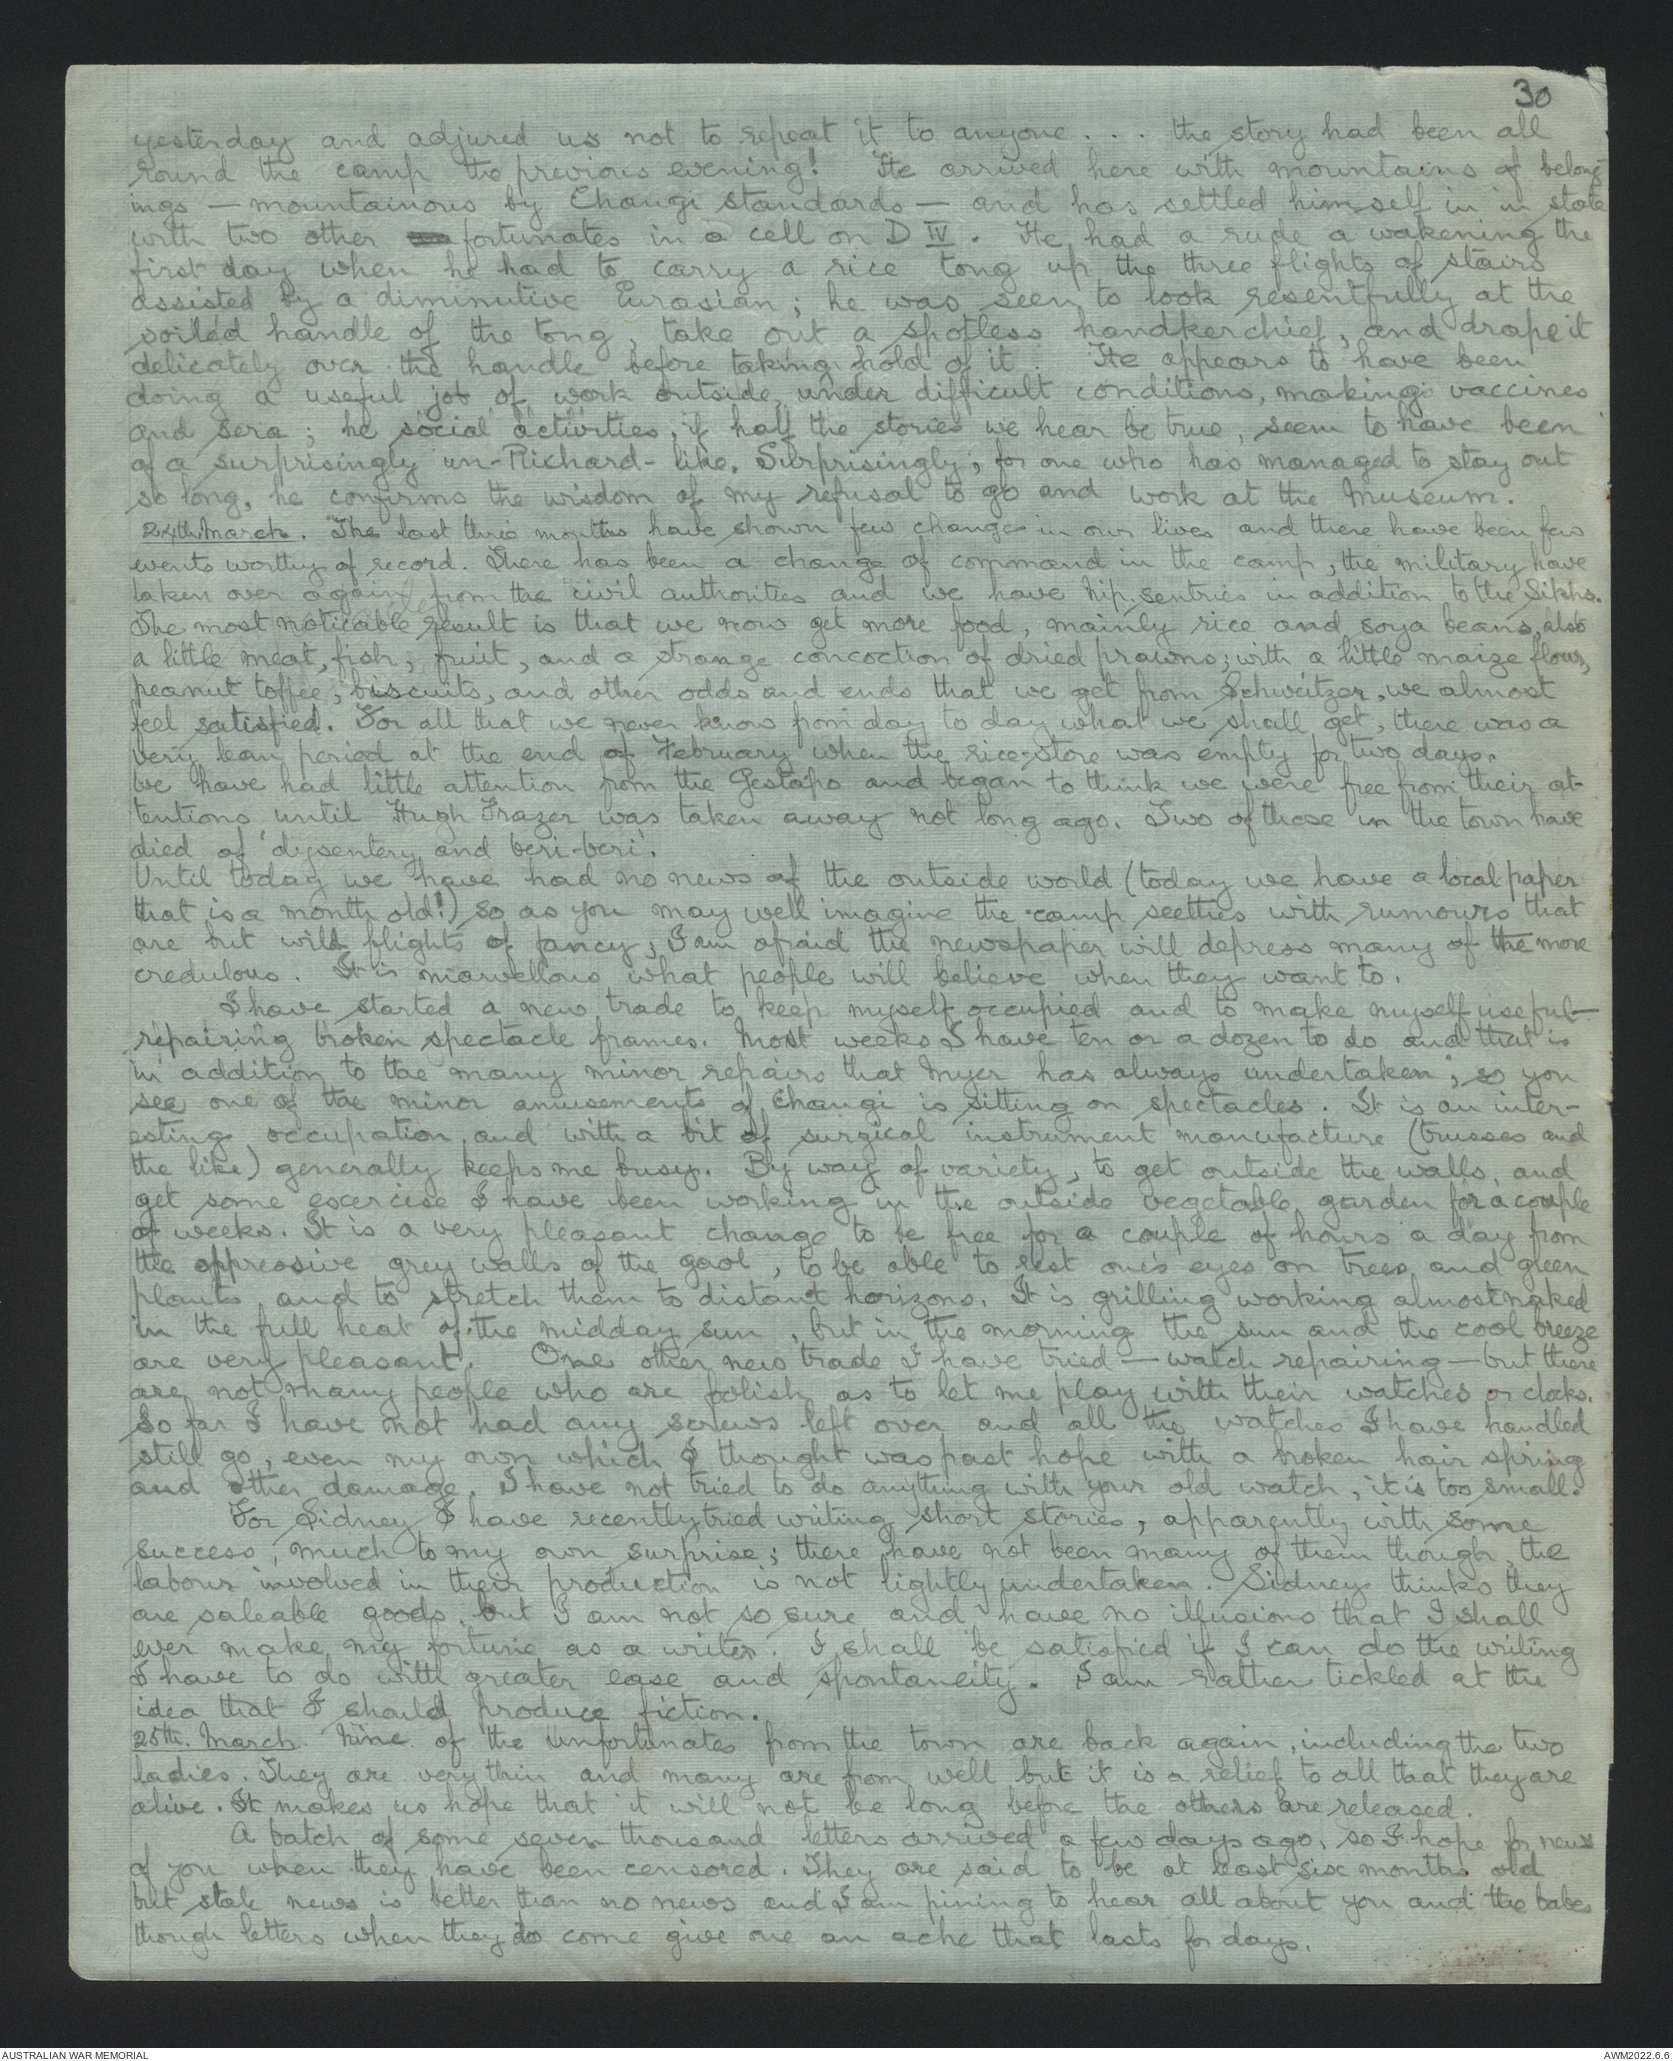 30
yesterday and adjured us not to repeat it to anyone . . . the story had been all
round the camp the previous evening! He arrived here with mountains of belong-
ings — mountainous by Changi standards — and has settled himself in in state
with two other fortunates in a cell on D IV. He had a rude a wakening the
first day when he had to carry a rice tong up the three flights of stairs
assisted by a diminutive Eurasian; he was seen to look resentfully at the
soiled handle of the tong, take out a spotless handkerchief, and drape it
delicately over the handle before taking hold of it. He appears to have been
doing a useful job of work outside, under difficult conditions, making vaccines
and sera; he social activities, if half the stories we hear be true, seem to have been
of a surprisingly un-Richard-like. Surprisingly, for one who has managed to stay out
so long, he confirms the wisdom of my refusal to go and work at the Museum.
24th March. The last three months have shown few change in our lives and there have been few
events worthy of record. There has been a change of command in the camp, the military have
taken over again from the civil authorities and we have Nip. sentries in addition to the Sikhs.
The most noticable result is that we now get more food, mainly rice and soya beans, also
a little meat, fish, fruit, and a strange concoction of dried prawns; with a little maize flour,
peanut toffee, biscuits, and other odds and ends that we get from Schweitzer, we almost
feel satisfied. For all that we never know from day to day what we shall get, there was a
very lean period at the end of February when the rice-store was empty for two days.
We have had little attention from the Gestapo and began to think we were free from their at-
tentions until Hugh Frazer was taken away not long ago. Two of those in the town have
died of 'dysentery and beri-beri'.
Until today we have had no news of the outside world (today we have a local paper
that is a month old!) so as you may well imagine the camp seethes with rumours that
are but wild flights of fancy; I am afraid the newspaper will depress many of the more
credulous. It is marvellous what people will believe when they want to.
I have started a new trade to keep myself occupied and to make myself useful —
repairing broken spectacle frames. Most weeks I have ten or a dozen to do and that is
in addition to the many minor repairs that Myer has always undertaken; so you
see one of the minor amusements of Changi is sitting on spectacles. It is an inter-
esting occupation and with a bit of surgical instrument manufacture (trusses and
the like) generally keeps me busy. By way of variety, to get outside the walls, and
get some excercise I have been working in the outside vegetable garden for a couple
of weeks. It is a very pleasant change to be free for a couple of hours a day from
the oppressive grey walls of the gaol, to be able to rest one's eyes on trees and green
plants and to stretch them to distant horizons. It is grilling working almost naked
in the full heat of the midday sun, but in the morning the sun and the cool breeze
are very pleasant. One other new trade I have tried — watch repairing — but there
are not many people who are folish as to let me play with their watches or clocks.
So far I have not had any screws left over and all the watches I have handled
still go, even my own which I thought was past hope with a broken hair spring
and other damage. I have not tried to do anything with your old watch, it is too small.
For Sidney I have recently tried writing short stories, apparently with some
success, much to my own surprise; there have not been many of them though, the
labour involved in their production is not lightly undertaken. Sidney thinks they
are saleable goods, but I am not so sure and have no illusions that I shall
ever make my fortune as a writer. I shall be satisfied if I can do the writing
I have to do with greater ease and spontaneity. I am rather tickled at the
idea that I should produce fiction.
25th. March. Nine of the unfortunates from the town are back again, including the two
ladies. They are very thin and many are from well but it is a relief to all that they are
alive. It makes us hope that it will not be long before the others are released.
A batch of some seven thousand letters arrived a few days ago, so I hope for news
of you when they have been censored. They are said to be at least six months old
but stale news is better than no news and I am pining to hear all about you and the babes
though letters when they do come give one an ache that lasts for days.
AUSTRALIAN WAR MEMORIAL
AWM2022.6.6